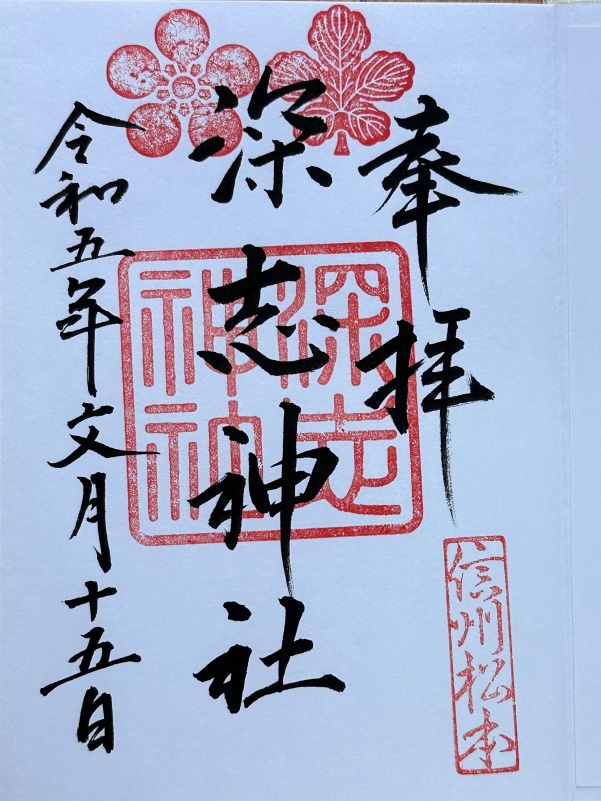 奉拝
深志神社
令和五年文月十五日
深志神社
信州松本